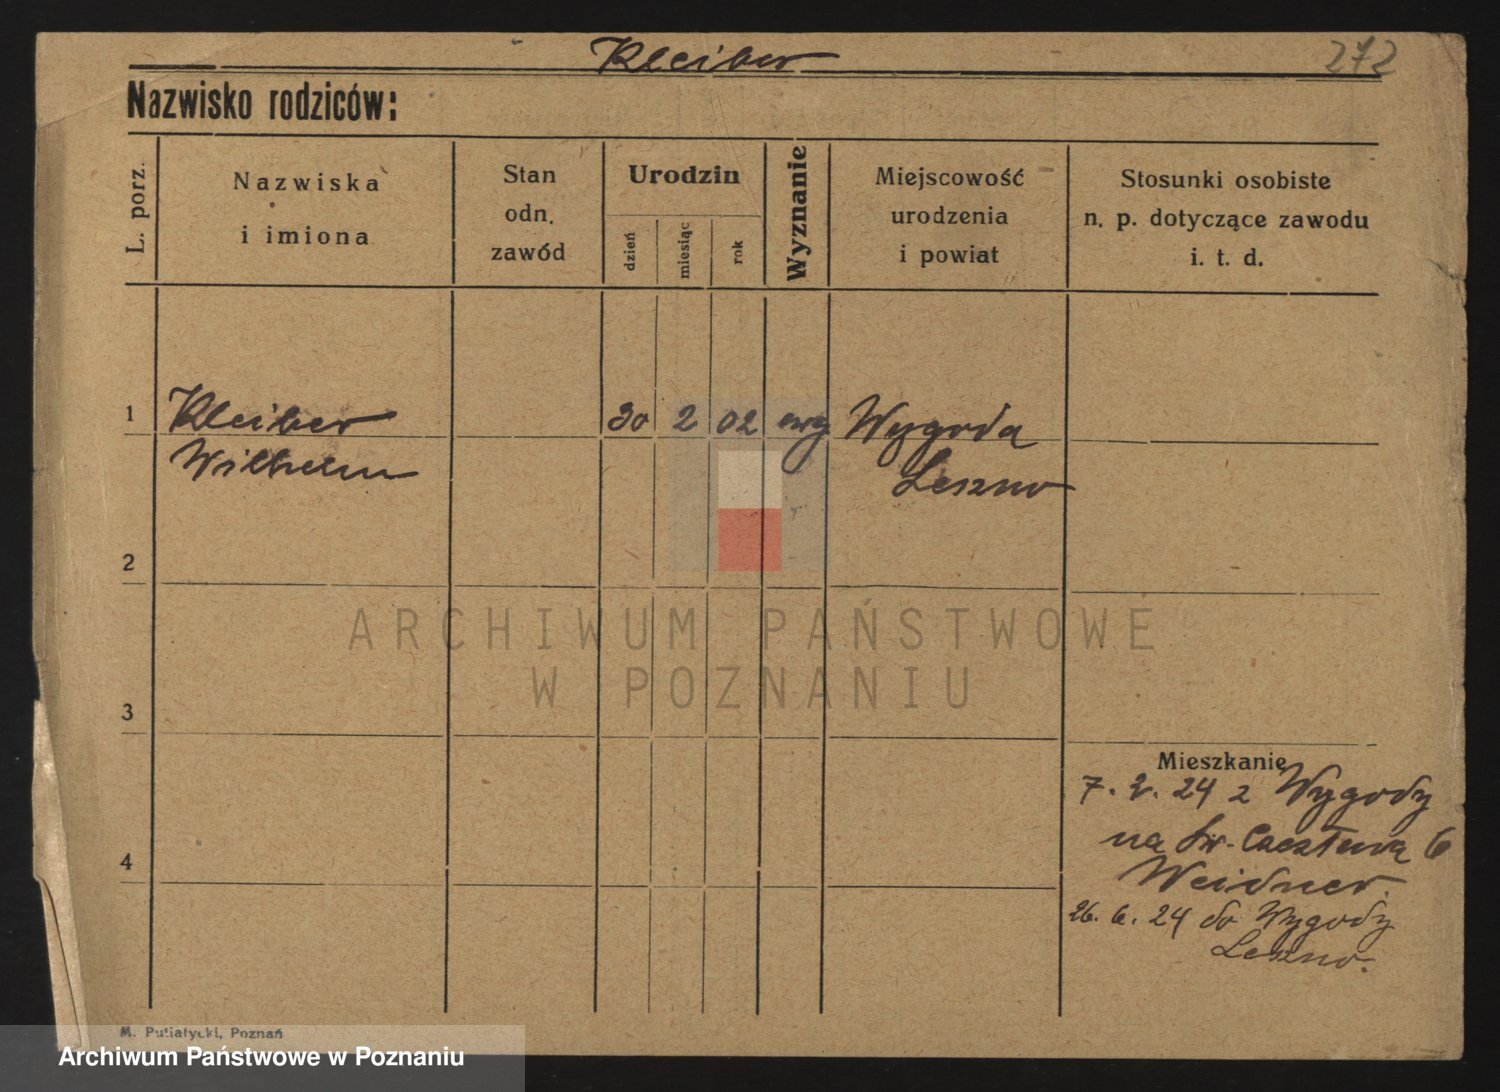 Kleiber
272
Nazwisko rodziców:
L. porz.
Nazwiska
i imiona
Stan
odn.
zawód
Urodzin
dzień
miesiąc
rok
Wyznanie
Miejscowość
urodzenia
i powiat
Stosunki osobiste
n. p. dotyczące zawodu
i. t. d.
1
Kleiber 30 2 02 ewg Wygoda
Wilhelm Leszno
2
ARCHIWUM PAŃSTWOWE
W POZNANIU
3
Mieszkanie
7. 2. 24 z Wygody
na Św. 6
Weidner.
4
26. 6. 24 do Wygody
Leszno.
M. Putiatycki, Poznań
Archiwum Państwowe w Poznaniu